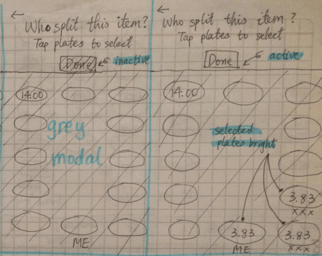 ←
Who split this item?
Tap plates to select
Done
inactive
14.00
grey
modal
ME
←
Who split this item?
Tap plates to select
Done
active
14.00
selected
plates bright
3.83
xxx
3.83
ME
3.83
xxx